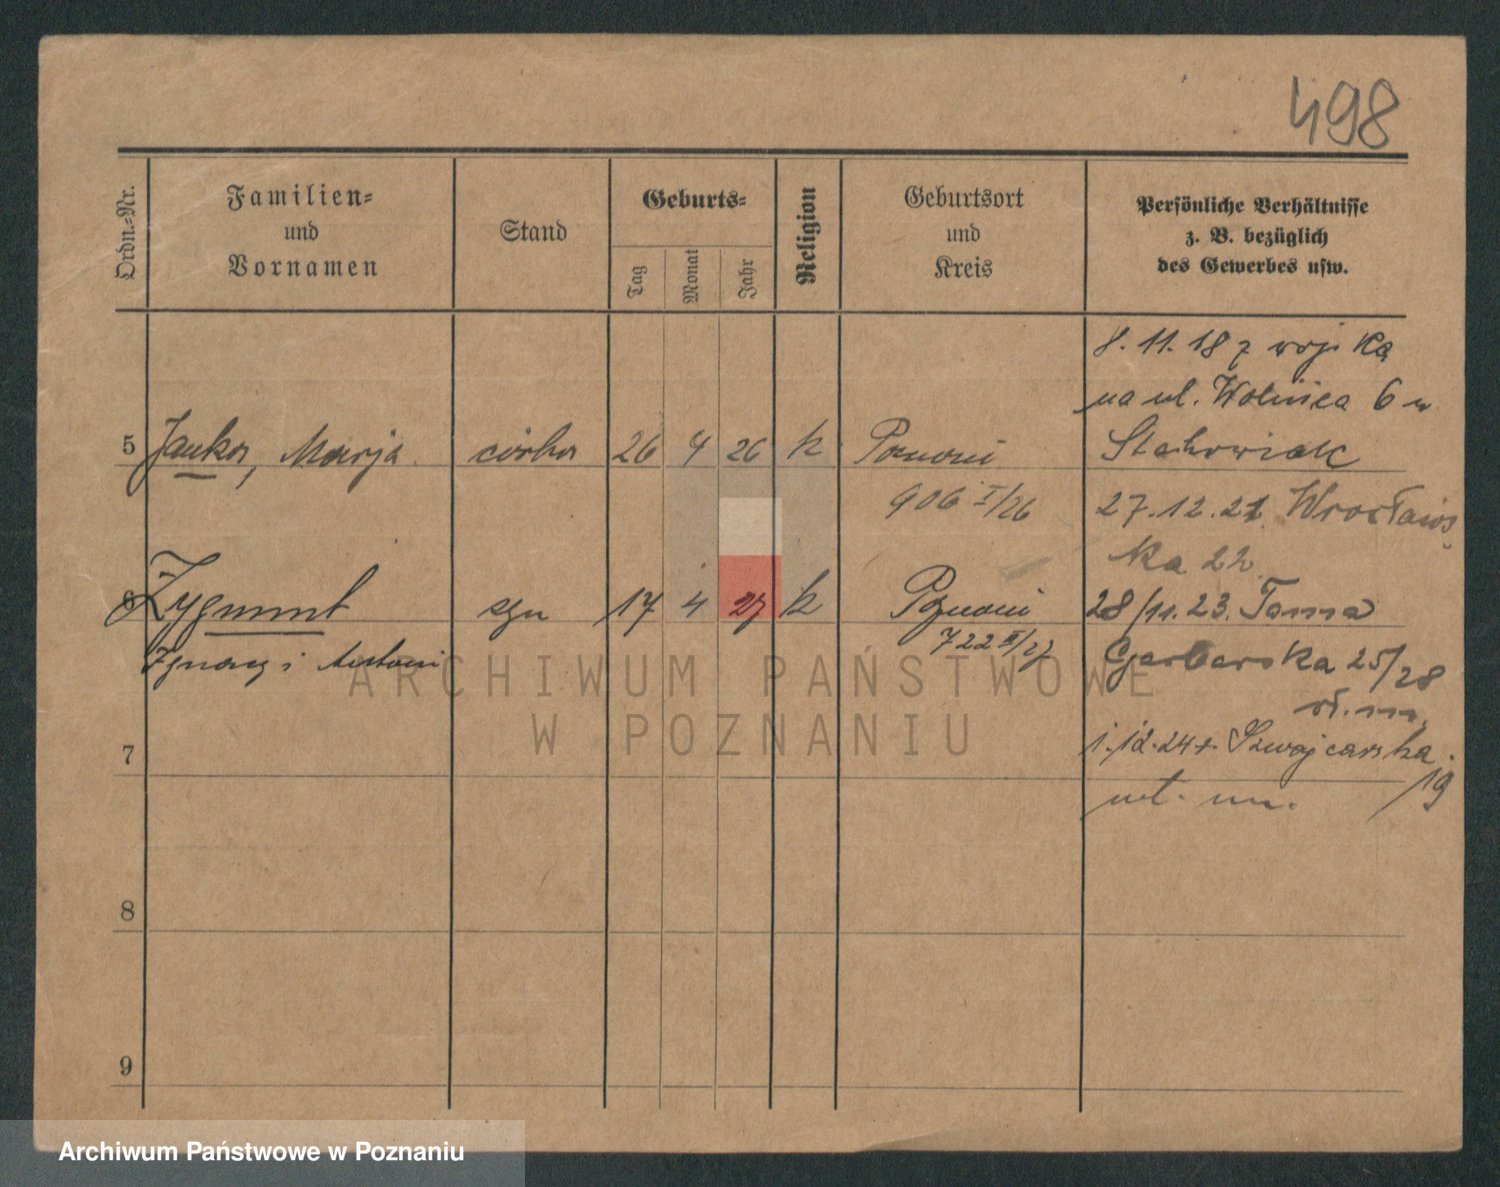 498
Ordn.-Nr.
Familien-
und
Vornamen
Stand
Geburts-
Tag
Monat
Jahr
Religion
Geburtsort
und
Kreis
Persönliche Verhältnisse
z. B. bezüglich
des Gewerbes usw.
8. 11. 18 z wojska
na ul. Wolnica 6 u
Stachowiak
5 Janka, Marja córka 26 4 26 k Poznań
906 I/26
27.12.21 Wrocławs
ka 22
6 Zygmunt syn 17 4 27 k Poznań
722 II/27
Ignacy i Antoni
28/11.23. Tama
Garbarska 25/28
1.12.24 Szwajcarska
19
7
8
9
ARCHIWUM PAŃSTWOWE
W POZNANIU
Archiwum Państwowe w Poznaniu